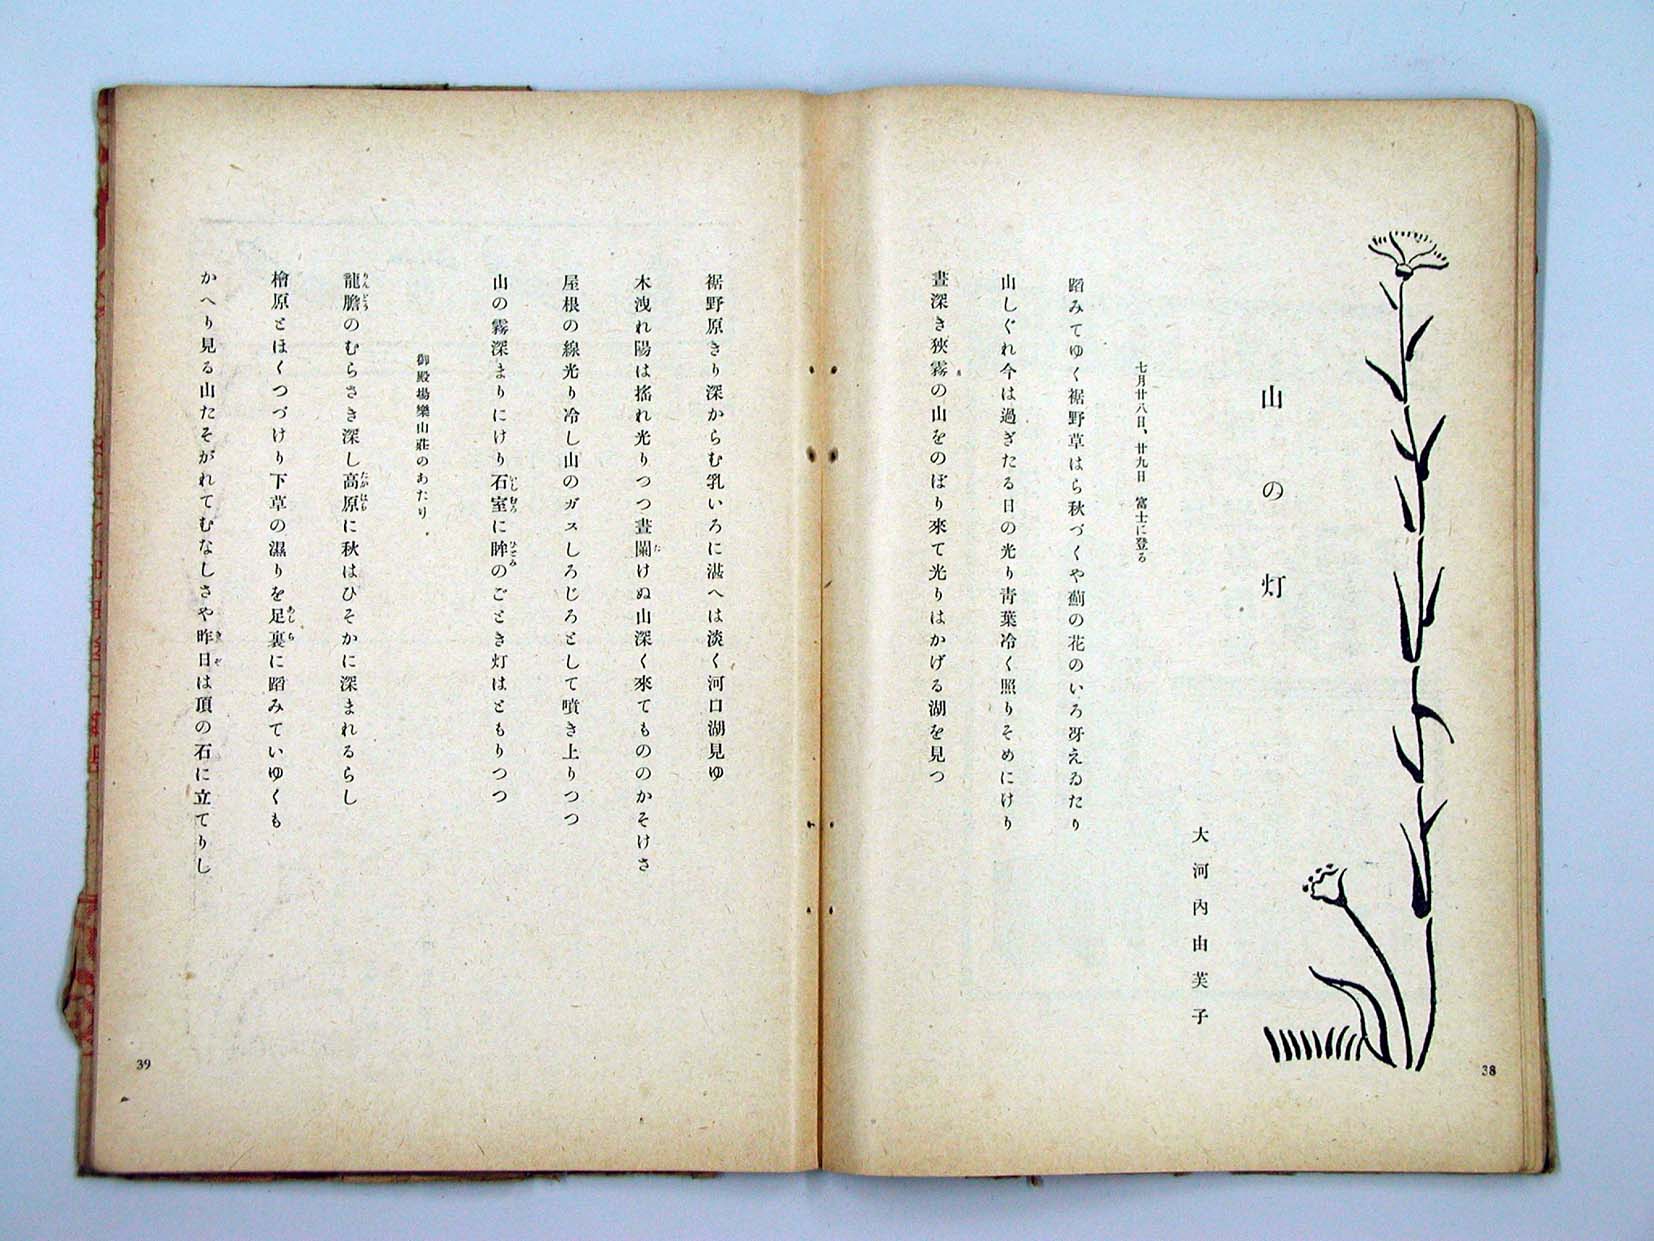 山の灯
大河内由芙子
七月廿八日、廿九日　富士に登る
蹈みてゆく裾野草はら秋づくや薊の花のいろ冴えゐたり
山しぐれ今は過ぎたる日の光り靑葉冷く照りそめにけり
晝深き狹霧の山をのぼり來て光りはかげる湖を見つ
38
裾野原きり深からむ乳いろに湛へは淡く河口湖見ゆ
木洩れ陽は搖れ光りつつ晝闌けぬ山深く來てもののかそけさ
屋根の線光り冷し山のガスしろじろとして噴き上りつつ
山の霧深まりにけり石室に眸のごとき灯はともりつつ
御殿場樂山莊のあたり
龍膽のむらさき深し高原に秋はひそかに深まれるらし
檜原とほくつづけり下草の濕りを足裏に蹈みていゆくも
かへり見る山たそがれてむなしさや昨日は頂の石に立てりし
39